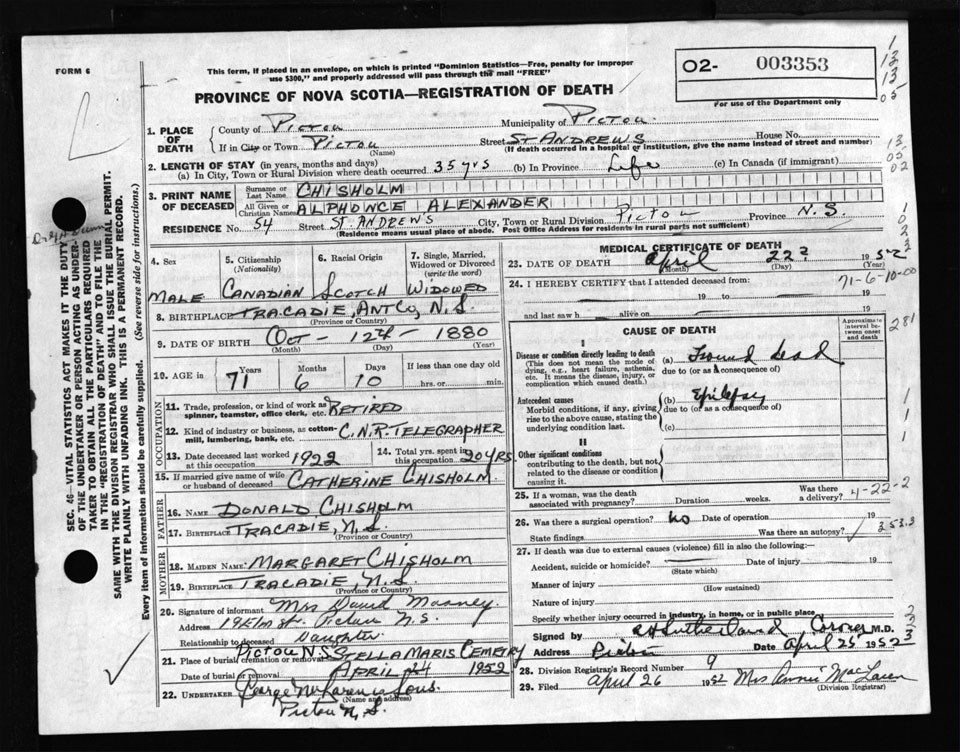 FORM 6
This form, if placed in an envelope, on which is printed "Dominion Statistics—Free, penalty for improper
use $300," and properly addressed will pass through the mail "FREE"
02- 003353
For use of the Department only
PROVINCE OF NOVA SCOTIA—REGISTRATION OF DEATH
1. PLACE OF DEATH
County of Pictou Municipality of Pictou
If in City or Town Pictou Street St Andrews House No.
(Name) (If death occurred in a hospital or institution, give the name instead of street and number)
2. LENGTH OF STAY (in years, months and days)
(a) In City, Town or Rural Division where death occurred 35 yrs (b) In Province Life (c) In Canada (if immigrant)
3. PRINT NAME OF DECEASED
Surname or Last Name CHISHOLM
All Given or Christian Names ALPHONCE ALEXANDER
RESIDENCE No. 54 Street ST ANDREW'S City, Town or Rural Division Pictou Province N.S.
(Residence means usual place of abode. Post Office Address for residents in rural parts not sufficient)
SEC. 46—VITAL STATISTICS ACT MAKES IT THE DUTY
OF THE UNDERTAKER OR PERSON ACTING AS UNDER-
TAKER TO OBTAIN ALL THE PARTICULARS REQUIRED
IN THE "REGISTRATION OF DEATH" AND TO FILE THE
SAME WITH THE DIVISION REGISTRAR WHO SHALL ISSUE THE BURIAL PERMIT.
WRITE PLAINLY WITH UNFADING INK. THIS IS A PERMANENT RECORD.
Every item of information should be carefully supplied. (See reverse side for instructions.)
4. Sex
5. Citizenship (Nationality)
6. Racial Origin
7. Single, Married, Widowed or Divorced (write the word)
MALE CANADIAN SCOTCH WIDOWED
8. BIRTHPLACE TRACADIE, ANT CO, N.S.
(Province or Country)
9. DATE OF BIRTH Oct - 12th - 1880
(Month) (Day) (Year)
10. AGE in 71 Years 6 Months 10 Days If less than one day old
hrs. or min.
OCCUPATION
11. Trade, profession, or kind of work as spinner, teamster, office clerk, etc. RETIRED
12. Kind of industry or business, as cotton-mill, lumbering, bank, etc. C.N.R. TELEGRAPHER
13. Date deceased last worked at this occupation 1922
14. Total yrs. spent in this occupation 20 YRS.
15. If married give name of wife or husband of deceased CATHERINE CHISHOLM
FATHER
16. NAME DONALD CHISHOLM
17. BIRTHPLACE TRACADIE, N.S.
(Province or Country)
MOTHER
18. MAIDEN NAME MARGARET CHISHOLM
19. BIRTHPLACE TRACADIE, N.S.
(Province or Country)
20. Signature of informant Mrs David
Address Elm St. Pictou N.S.
Relationship to deceased Daughter
21. Place of burial cremation or removal Pictou N.S. STELLA MARIS CEMETRY
Date of burial or removal APRIL 24 1952
22. UNDERTAKER George Sons.
(Name and address)
Pictou N.S.
MEDICAL CERTIFICATE OF DEATH
23. DATE OF DEATH April 22 1952
(Month) (Day) (Year)
71-6-10-00
24. I HEREBY CERTIFY that I attended deceased from:
19 to 19
and last saw h alive on 19
CAUSE OF DEATH
Approximate interval between onset and death
I
Disease or condition directly leading to death
(This does not mean the mode of dying, e.g., heart failure, asthenia, etc. It means the disease, injury, or complication which caused death.)
(a) Found dead
due to (or as a consequence of)
Antecedent causes
Morbid conditions, if any, giving rise to the above cause, stating the underlying condition last.
(b) Epilepsy
due to (or as a consequence of)
(c)
II
Other significant conditions
contributing to the death, but not related to the disease or condition causing it.
25. If a woman, was the death associated with pregnancy? Duration weeks. Was there a delivery?
4-22-2
26. Was there a surgical operation? No Date of operation 19
State findings Was there an autopsy?
353.3
27. If death was due to external causes (violence) fill in also the following:
Accident, suicide or homicide? Date of injury 19
(State which)
Manner of injury (How sustained)
Nature of injury
Specify whether injury occurred in industry, in home, or in public place
Signed by Sutherland Coroner M.D.
Address Pictou Date April 25 1952
28. Division Registrar's Record Number 9
29. Filed April 26 1952 Mrs Annie MacLaren
(Division Registrar)